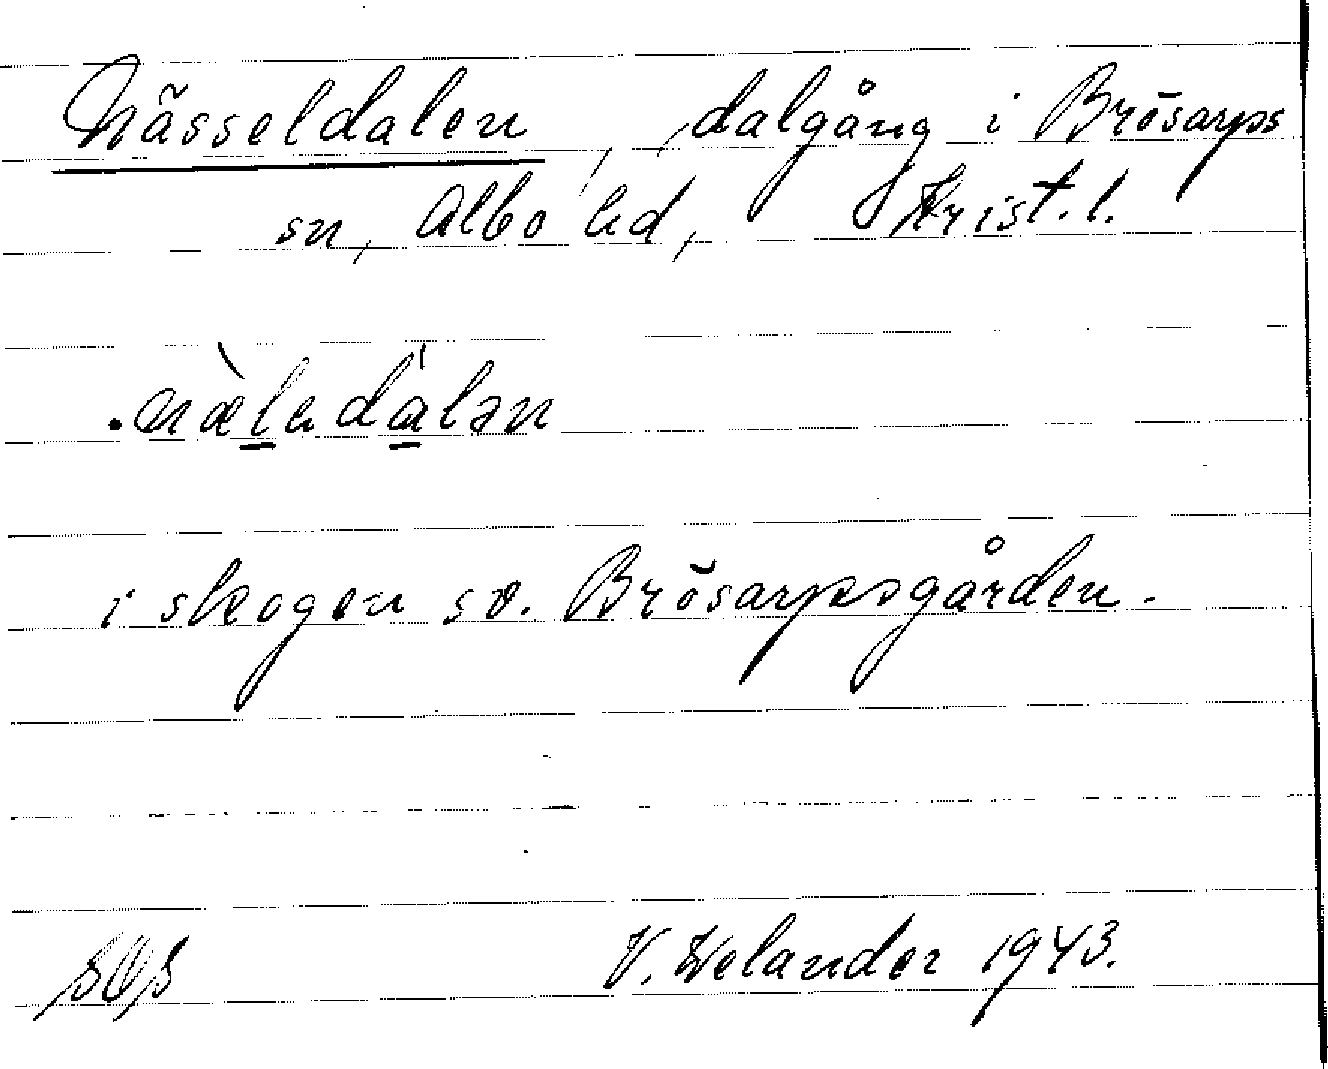 Nässeldalen, dalgång i Brösarps
sn, Albo hd, Krist. l.
i skogen sv. Brösarpsgården.
V. Welander 1943.